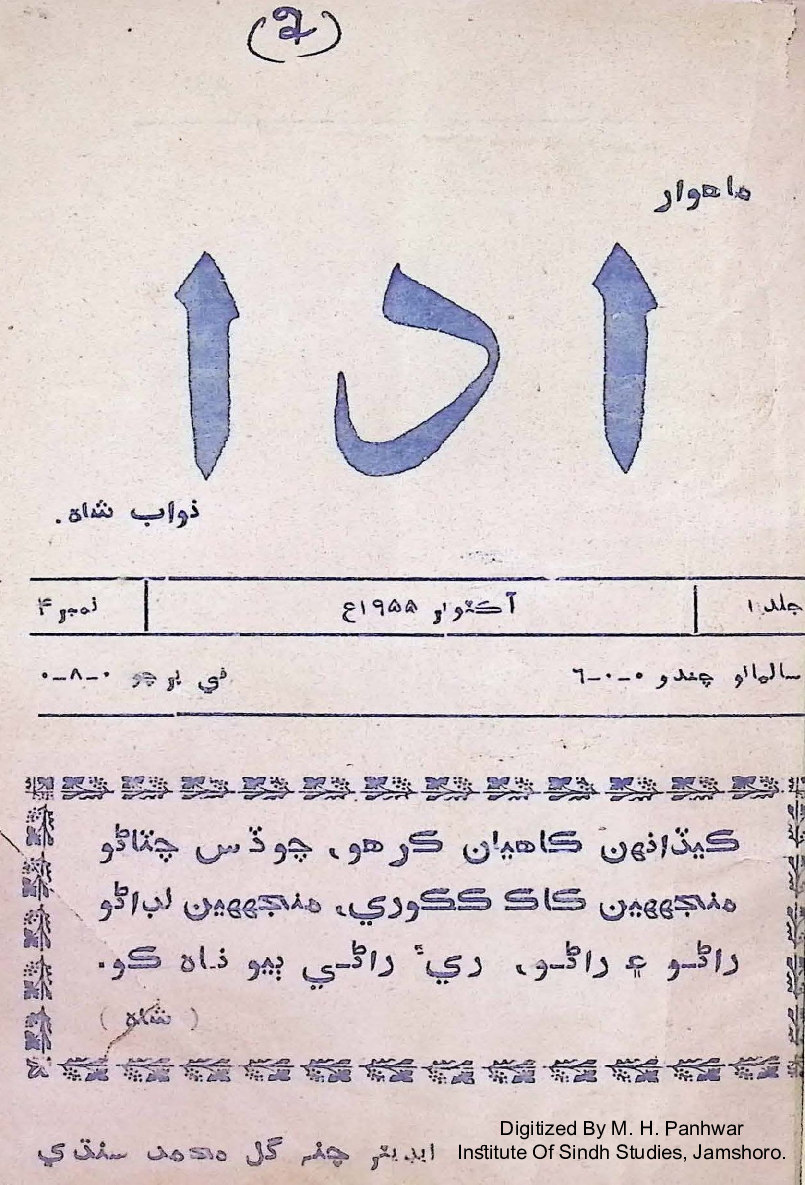 (۲)
ماهوار
ادا
نواب شاه.
جلد ۱ آڪٽوبر ۱۹۵۵ع نمبر ۴
سالمانو چندو ۰-۰-۶ في پرچو ۰-۸-۰
ڪيڏانهن ڪاهيان ڪرهو، چوڏس چٽاڻو
منجهين ڪاڪ ڪڪوري، منجهين لباڻو
راڻو ۽ راڻو، ريءَ راڻي ٻيو ناه ڪو.
( شاه )
ايڊيٽر چنہ گل محمد سنڌي
Digitized By M. H. Panhwar
Institute Of Sindh Studies, Jamshoro.